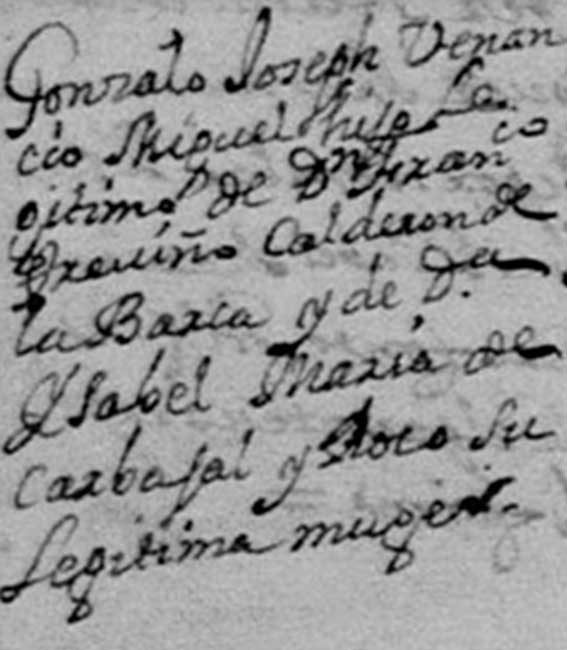 Gonzalo Joseph Venan
cio Miguel hijo Le
gitimo de Dn Franco
Treuiño Calderon de
la Barca y de Da
Ysabel Maria de
Carbajal y Stoco su
Legitima muger.